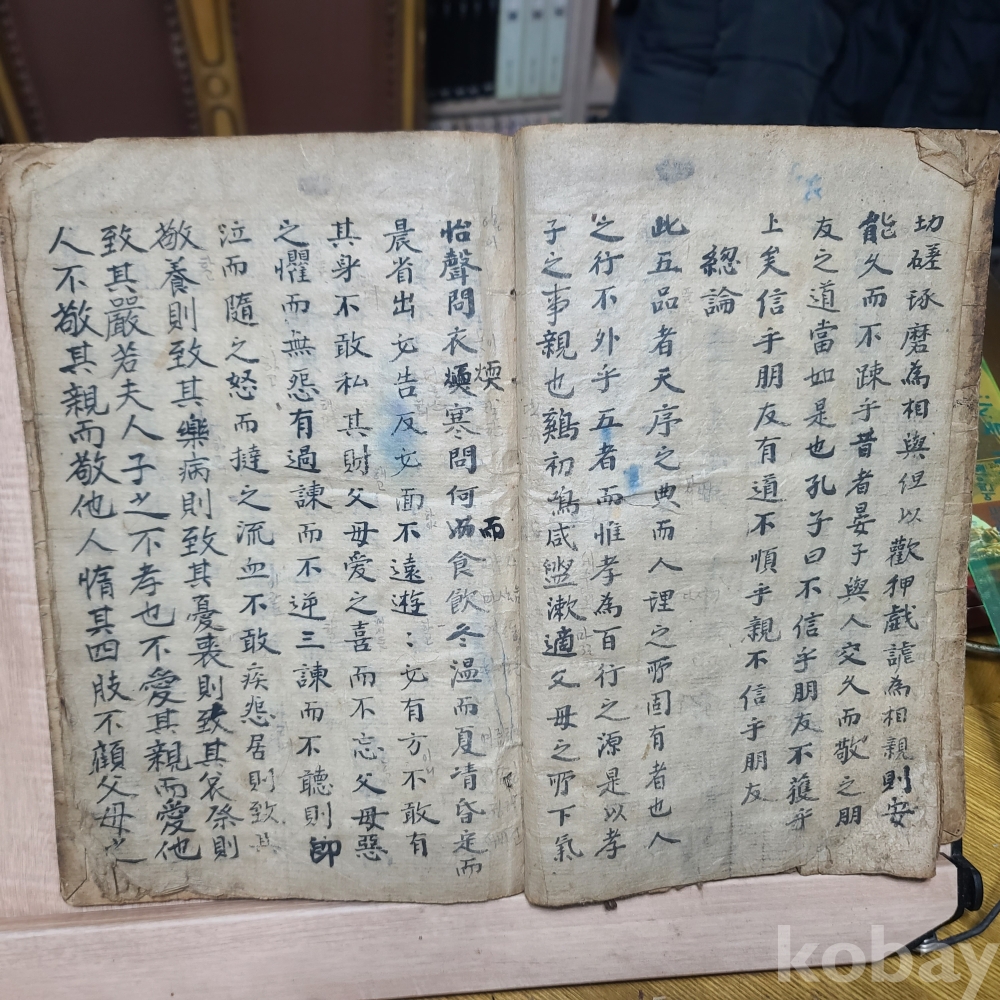 切磋琢磨為相與但以歡狎戲謔為相親則安
能久而不疎乎昔者晏子與人交久而敬之朋
友之道當如是也孔子曰不信乎朋友不獲乎
上矣信乎朋友有道不順乎親不信乎朋友
緫論
此五品者天序之典而人理之所固有者也人
之行不外乎五者而惟孝為百行之源是以孝
子之事親也鷄初鳴咸盥漱適父母之所下氣
怡聲問衣燠寒問何而食飲冬温而夏凊昏定而
晨省出必告反必面不遠遊：必有方不敢有
其身不敢私其財父母愛之喜而不忘父母惡
之懼而無怨有過諫而不逆三諫而不聽則卽
泣而隨之怒而撻之流血不敢疾怨居則致其
敬養則致其樂病則致其憂喪則致其哀祭則
致其嚴若夫人子之不孝也不愛其親而愛他
人不敬其親而敬他人惰其四肢不顧父母之
kobay